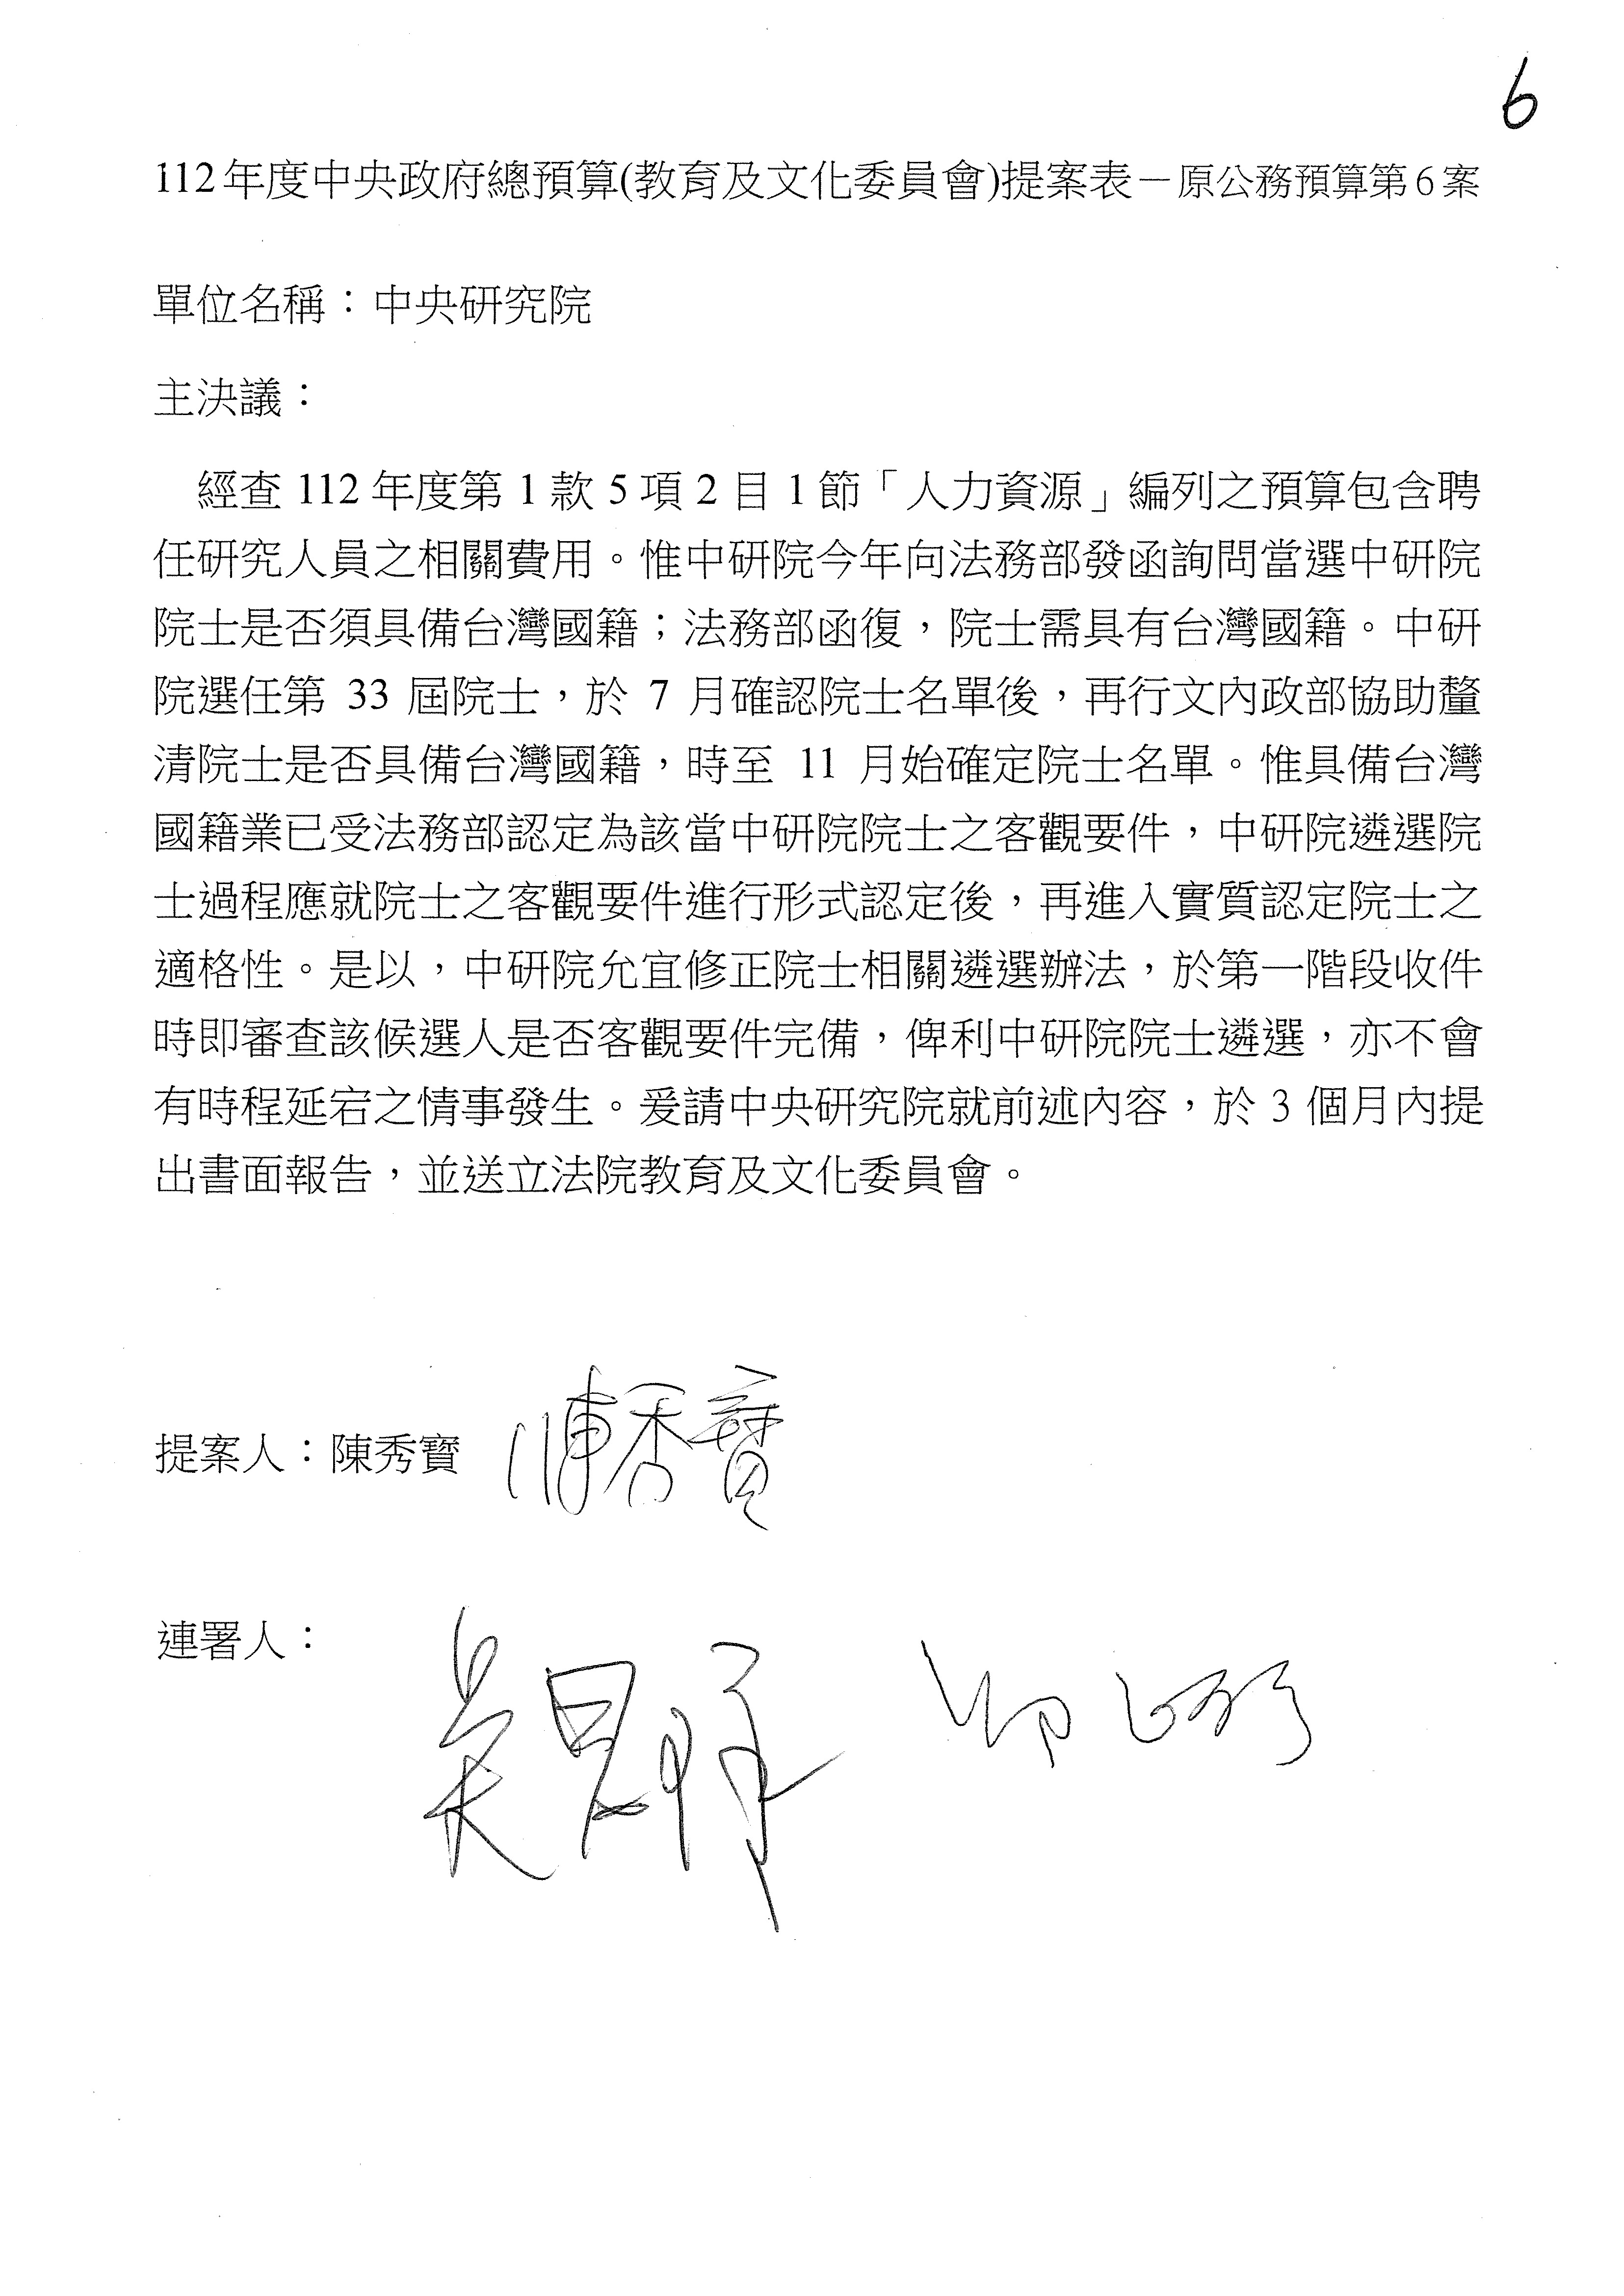 6
112年度中央政府總預算(教育及文化委員會)提案表－原公務預算第6案
單位名稱：中央研究院
主決議：
經查 112 年度第 1 款 5 項 2 目 1 節「人力資源」編列之預算包含聘
任研究人員之相關費用。惟中研院今年向法務部發函詢問當選中研院
院士是否須具備台灣國籍；法務部函復，院士需具有台灣國籍。中研
院選任第 33 屆院士，於 7 月確認院士名單後，再行文內政部協助釐
清院士是否具備台灣國籍，時至 11 月始確定院士名單。惟具備台灣
國籍業已受法務部認定為該當中研院院士之客觀要件，中研院遴選院
士過程應就院士之客觀要件進行形式認定後，再進入實質認定院士之
適格性。是以，中研院允宜修正院士相關遴選辦法，於第一階段收件
時即審查該候選人是否客觀要件完備，俾利中研院院士遴選，亦不會
有時程延宕之情事發生。爰請中央研究院就前述內容，於 3 個月內提
出書面報告，並送立法院教育及文化委員會。
提案人：陳秀寳 陳秀寶
連署人：